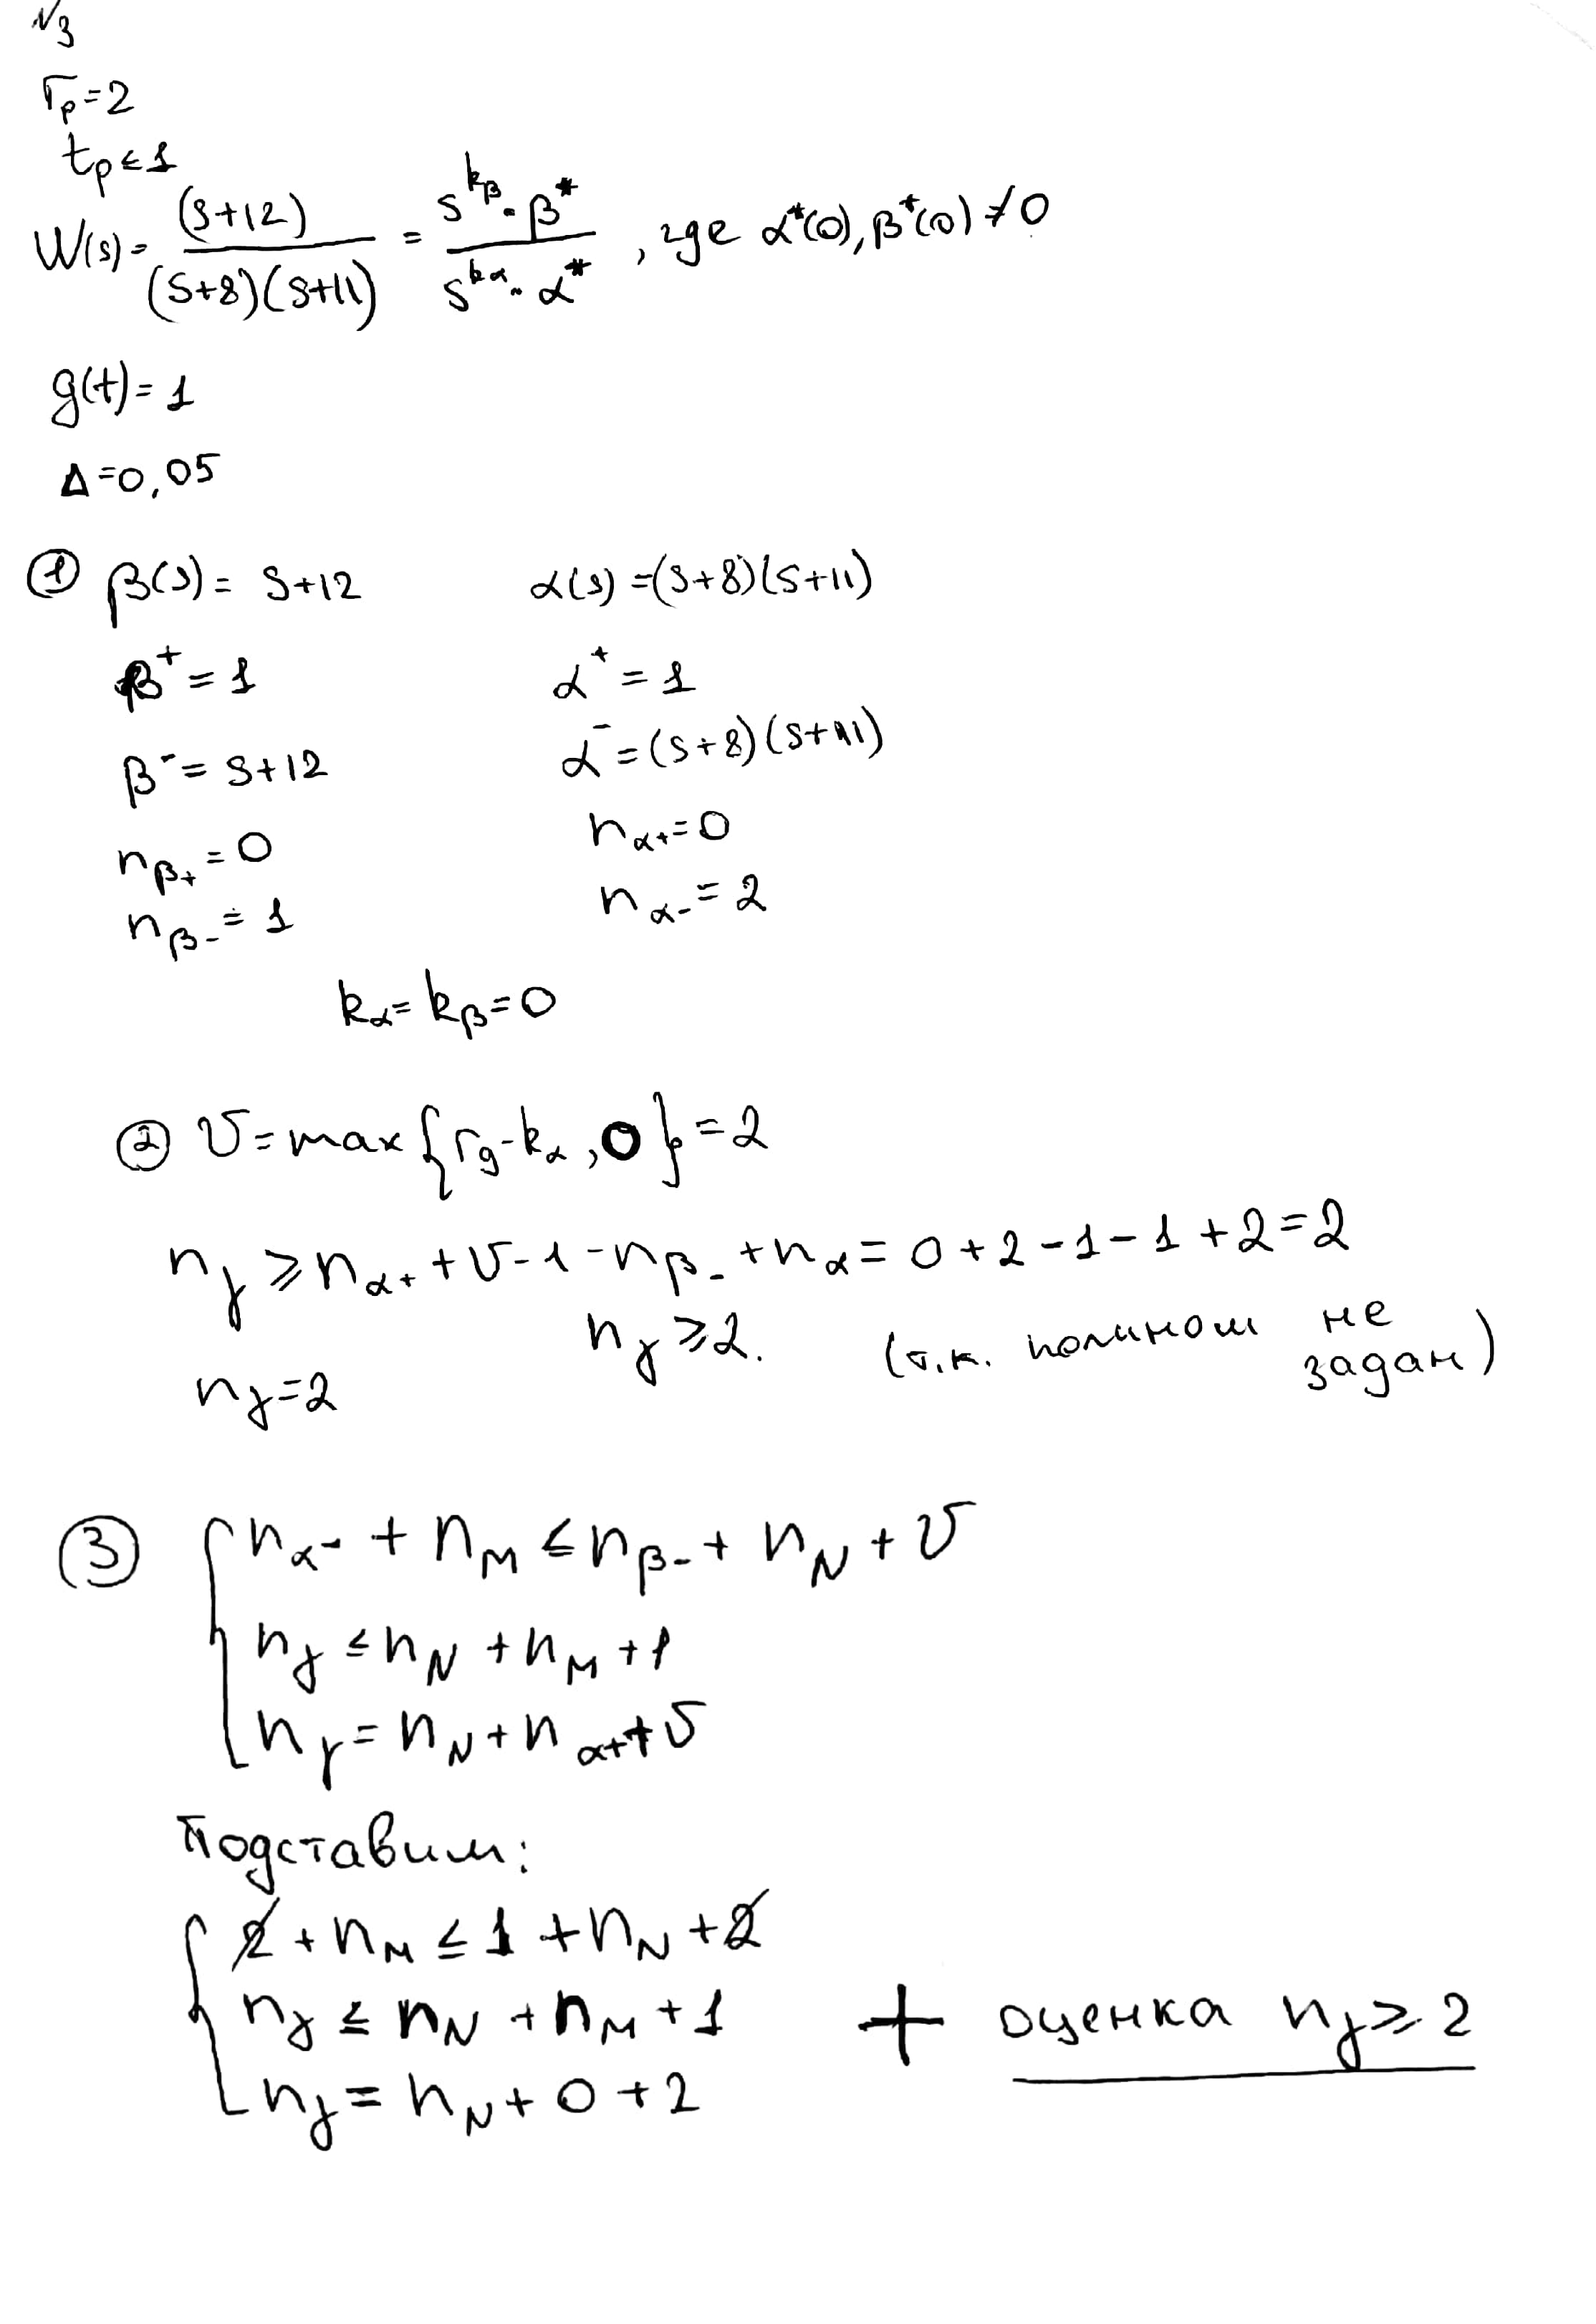 √3
Γp=2
tp≤1
W(s)= (s+12) / (s+8)(s+11) = s^kβ · β* / s^kα · α* , где α*(0), β*(0) ≠ 0
g(t)=1
Δ=0,05
① β(s)= s+12 α(s)=(s+8)(s+11)
β⁺=1 α⁺=1
β⁻=s+12 α⁻=(s+8)(s+11)
nβ+=0 nα+=0
nβ-=1 nα-=2
kα=kβ=0
② υ=max{rg-kα,0}=2
nγ≥nα+ +υ-1-nβ- +nα=0+2-1-1+2=2
nγ≥2. (т.к. полином не задан)
nγ=2
③ { nα- + nM ≤ nβ- + nN + υ
nγ ≤ nN + nM + 1
nγ = nN + nα+ + υ
Подставим:
{ 2 + nM ≤ 1 + nN + 2
nγ ≤ nN + nM + 1 + оценка nγ≥2
nγ = nN + 0 + 2